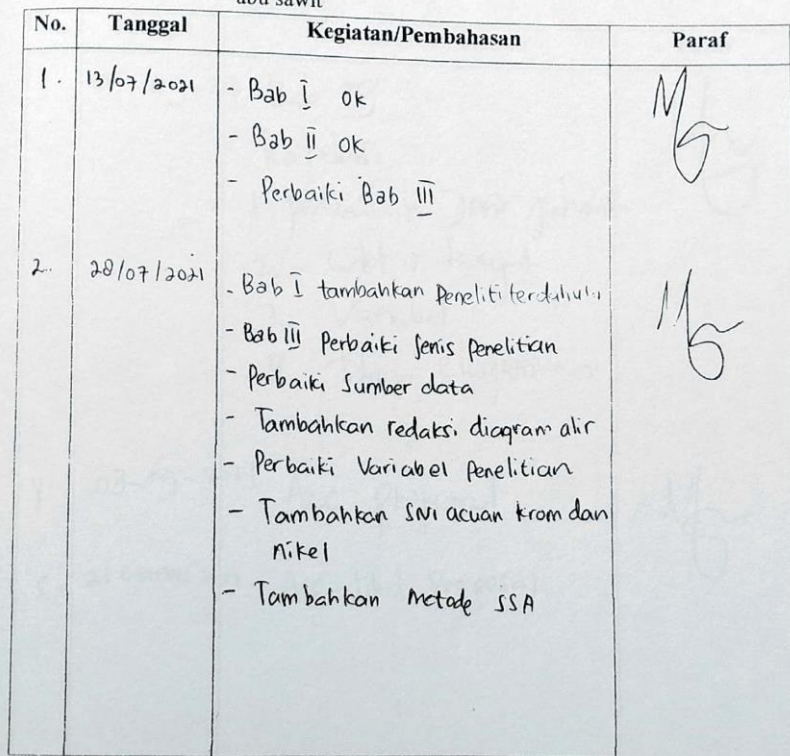 abu sawit
No. Tanggal Kegiatan/Pembahasan Paraf
1. 13/07/2021 - Bab I ok
- Bab II ok
- Perbaiki Bab III
2. 28/07/2021
- Bab I tambahkan Peneliti terdahulu
- Bab III Perbaiki Jenis Penelitian
- Perbaiki Sumber data
- Tambahkan redaksi diagram alir
- Perbaiki Variabel Penelitian
- Tambahkan SNI acuan krom dan
nikel
- Tambahkan Metode SSA